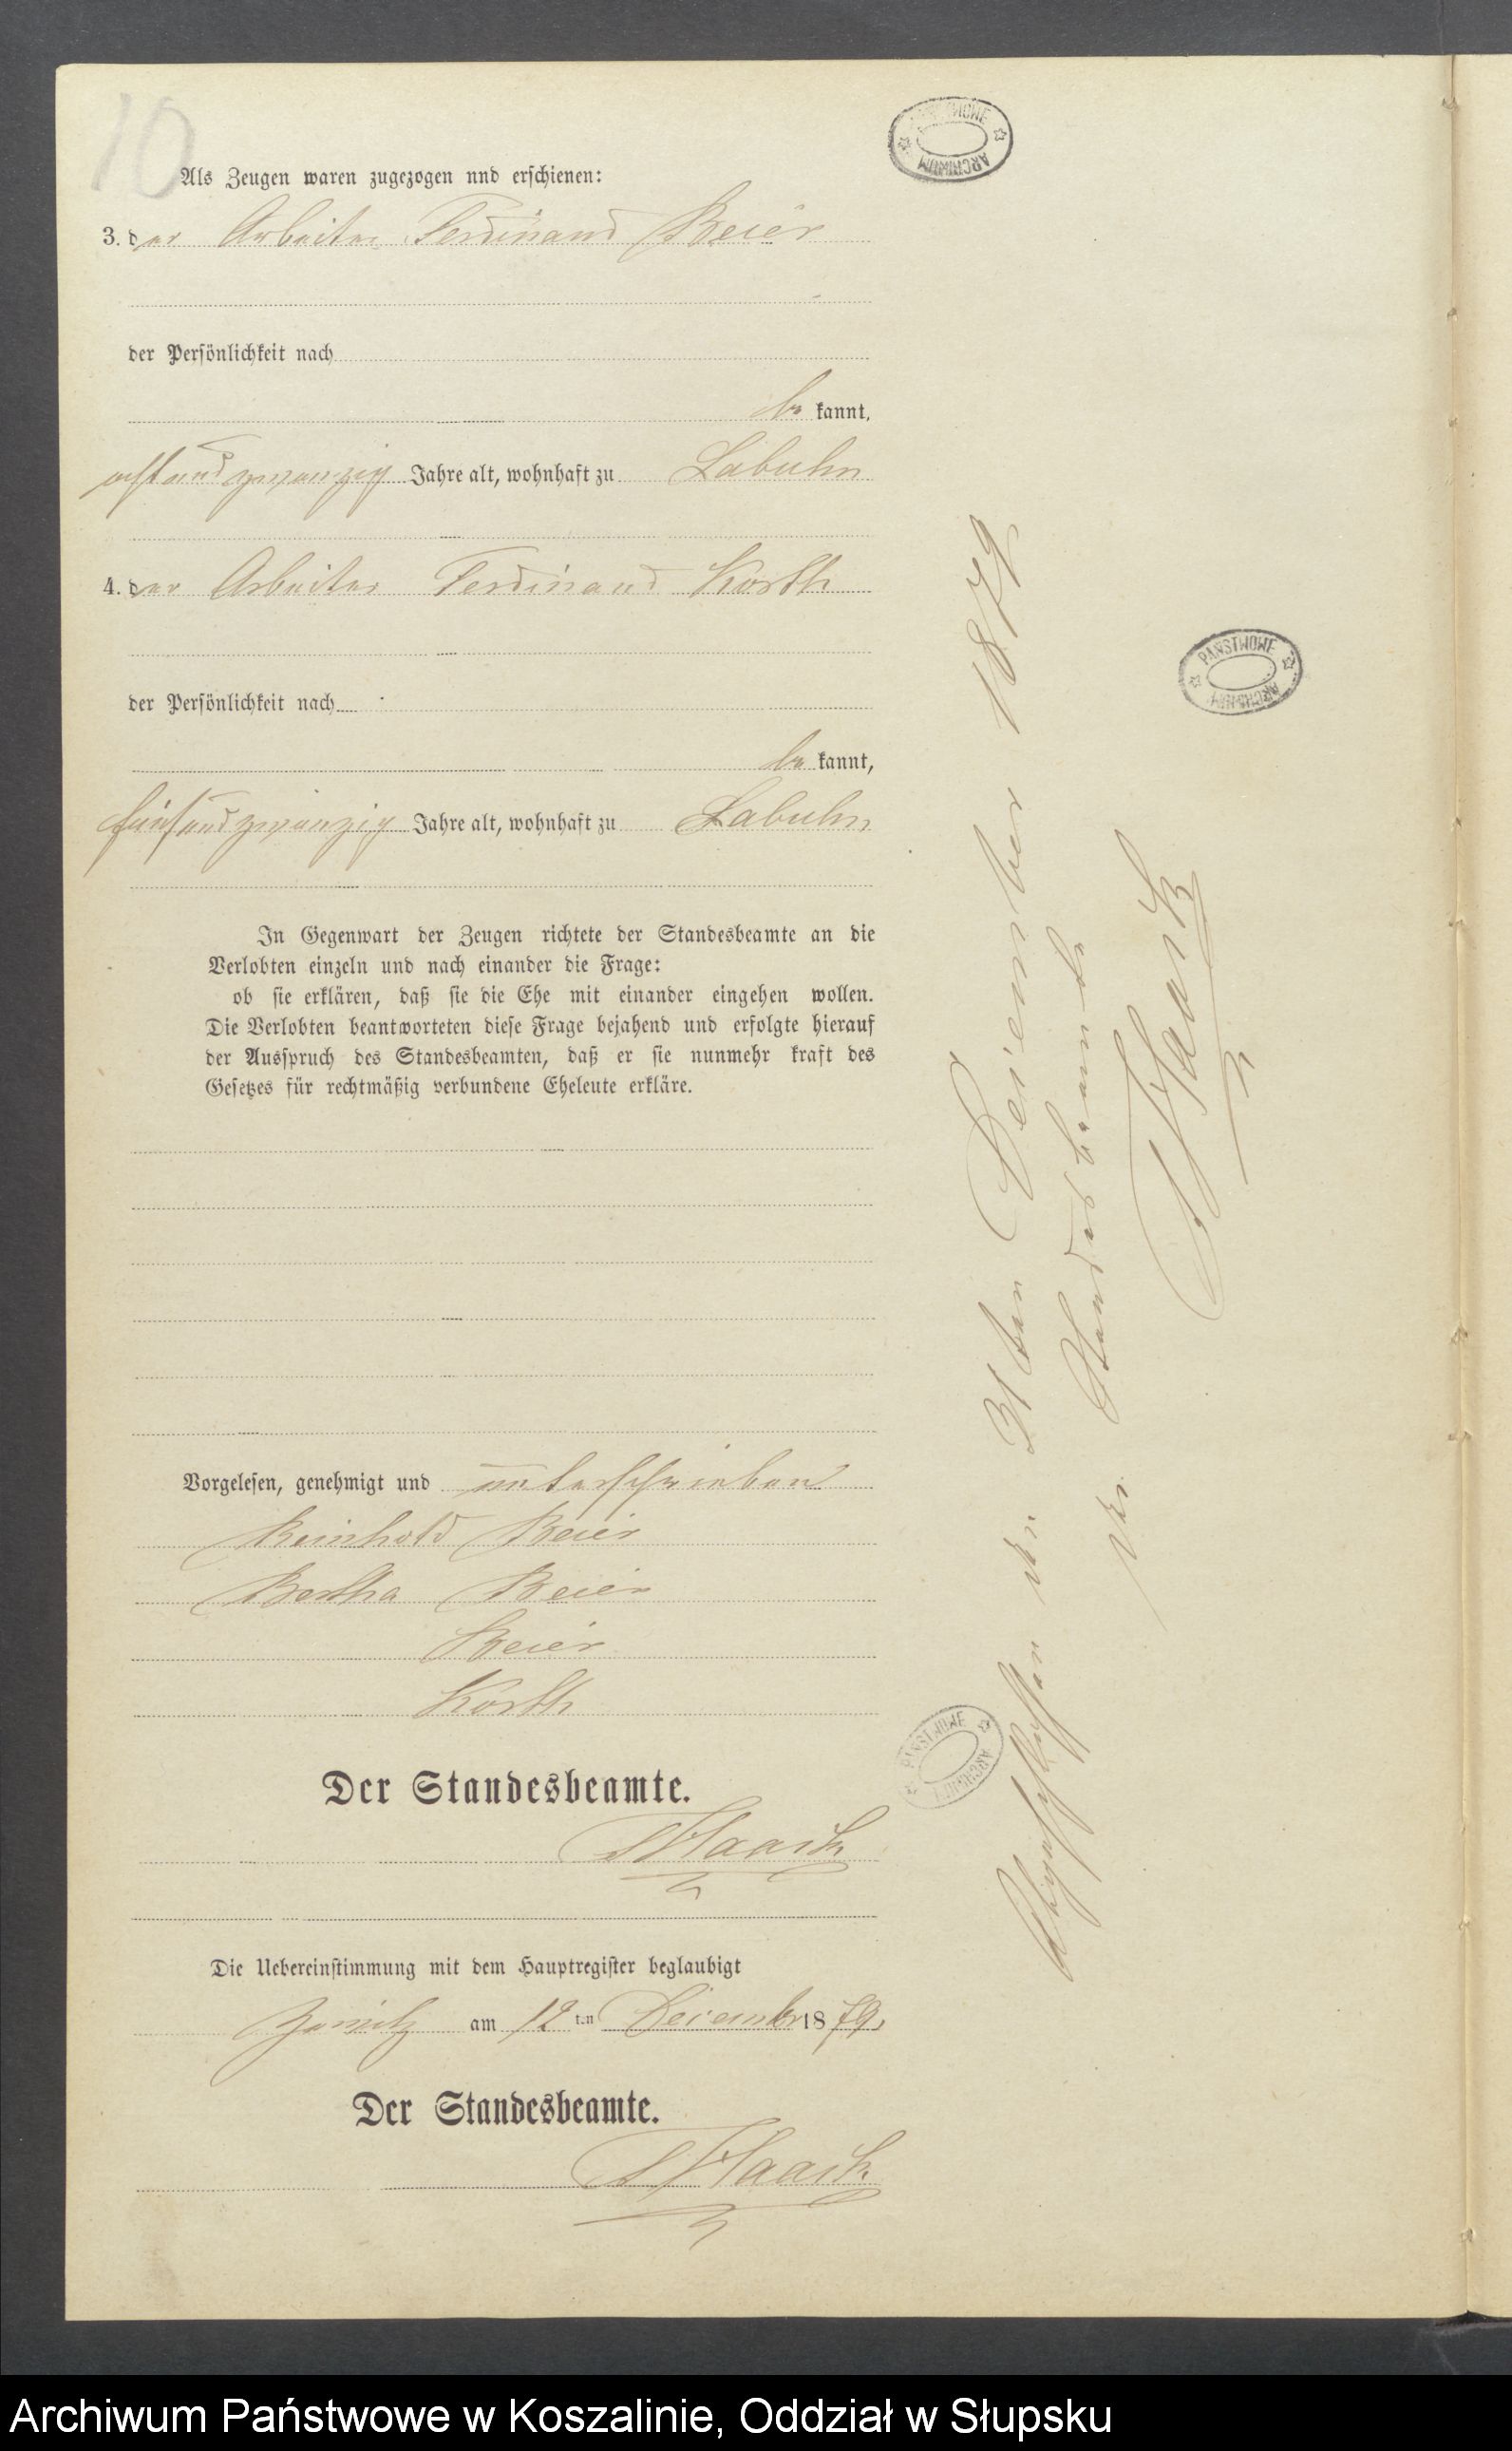 10
Als Zeugen waren zugezogen nnd erschienen:
3. der Arbeiter Ferdinand Beier
der Persönlichkeit nach
be kannt,
achtundzwanzig Jahre alt, wohnhaft zu Labuhn
4. der Arbeiter Ferdinand Korth
der Persönlichkeit nach
be kannt,
fünfundzwanzig Jahre alt, wohnhaft zu Labuhn
In Gegenwart der Zeugen richtete der Standesbeamte an die
Verlobten einzeln und nach einander die Frage:
ob sie erklären, daß sie die Ehe mit einander eingehen wollen.
Die Verlobten beantworteten diese Frage bejahend und erfolgte hierauf
der Ausspruch des Standesbeamten, daß er sie nunmehr kraft des
Gesetzes für rechtmäßig verbundene Eheleute erkläre.
Vorgelesen, genehmigt und unterschrieben
Reinhold Beier
Bertha Beier
Beier
Korth
Der Standesbeamte.
Haack
Die Uebereinstimmung mit dem Hauptregister beglaubigt
am 12 ten Decembr 1879.
Der Standesbeamte.
Haack
Abgeschlossen den 31 ten Decembr 1879
Der Standesbeamte
Haack
PAŃSTWOWE ARCHIWUM
PAŃSTWOWE ARCHIWUM
PAŃSTWOWE ARCHIWUM
Archiwum Państwowe w Koszalinie, Oddział w Słupsku